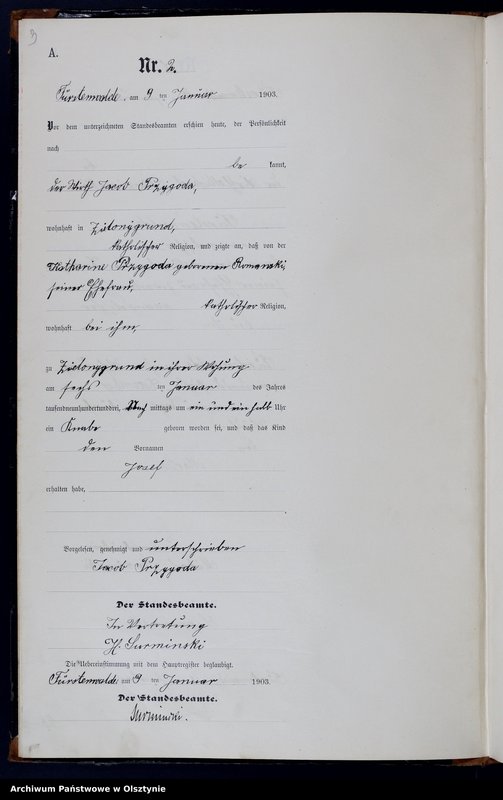 3
A.
Nr. 2.
Fürstenwalde, am 9 ten Januar 1903.
Vor dem unterzeichneten Standesbeamten erschien heute, der Persönlichkeit
nach
be kannt,
der Wirth Jacob Przygoda,
wohnhaft in
katholischer Religion, und zeigte an, daß von der
Katharina Przygoda geborenen Romanski,
seiner Ehefrau,
katholischer Religion,
wohnhaft bei ihm,
zu in ihrer Wohnung
am sechs ten Januar des Jahres
tausendneunhundertunddrei, Nach mittags um ein und ein halb Uhr
ein Knabe geboren worden sei, und daß das Kind
den Vornamen
Josef
erhalten habe,
Vorgelesen, genehmigt und unterschrieben
Jacob Przygoda
Der Standesbeamte.
In Vertretung
H. Surminski
Die Uebereinstimmung mit dem Hauptregister beglaubigt.
Fürstenwalde, am 9 ten Januar 1903.
Der Standesbeamte.
Surminski.
Archiwum Państwowe w Olsztynie